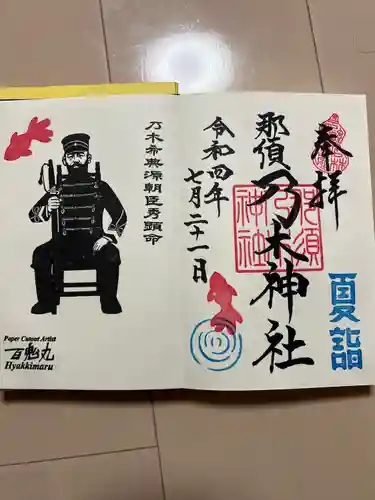 奉拝
夏詣
那須乃木神社
那須
乃木
神社
令和四年
七月二十一日
乃木希典源朝臣秀顕命
Paper Cutout Artist
百鬼丸
Hyakkimaru